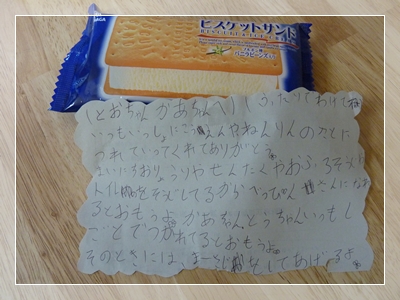 SAGA
ビスケットサンド
BISCUIT SAND
バニラビーンズ入り
(とおちゃん かあちゃんへ) ふたりでわけてね
いつもいっしょにこうえんやねんりんのとこに
つれていってくれてありがとう。
まいにちおりょうりやせんたくやおふろそうじ
トイレをそうじしてるからべっぴんさんになれ
るとおもうよ。かあちゃんとうちゃんいつもし
ごとでつかれてるとおもうよ。
そのときには、まっさじをしてあげるよ。